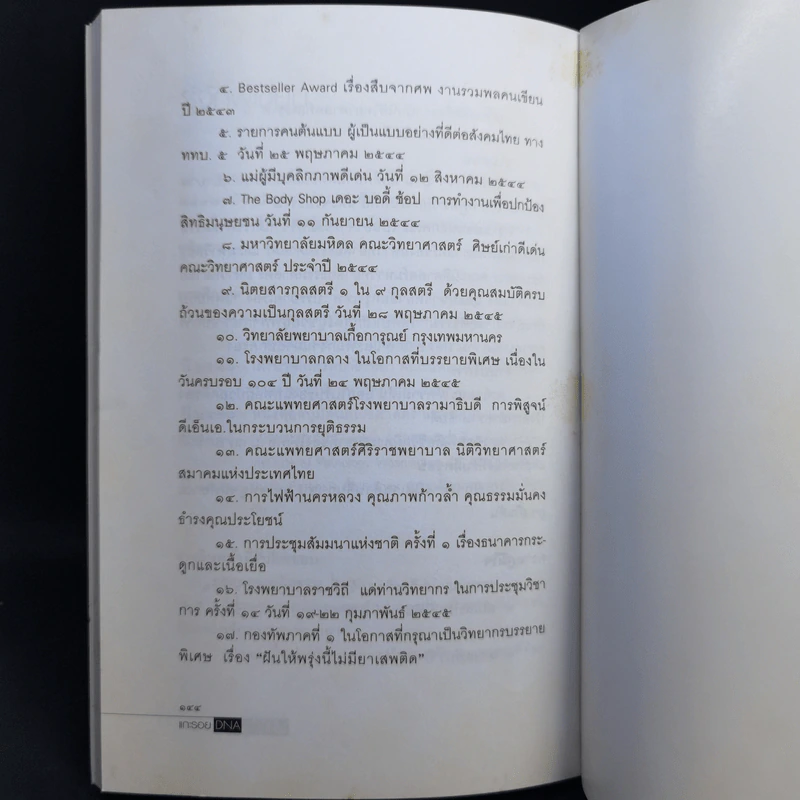 ๔. Bestseller Award เรื่องสืบจากศพ งานรวมพลคนเขียน
ปี ๒๕๔๓
๕. รายการคนต้นแบบ ผู้เป็นแบบอย่างที่ดีต่อสังคมไทย ทาง
ททบ. ๕ วันที่ ๒๕ พฤษภาคม ๒๕๔๔
๖. แม่ผู้มีบุคลิกภาพดีเด่น วันที่ ๑๒ สิงหาคม ๒๕๔๔
๗. The Body Shop เดอะ บอดี้ ช้อป การทำงานเพื่อปกป้อง
สิทธิมนุษยชน วันที่ ๑๑ กันยายน ๒๕๔๔
๘. มหาวิทยาลัยมหิดล คณะวิทยาศาสตร์ ศิษย์เก่าดีเด่น
คณะวิทยาศาสตร์ ประจำปี ๒๕๔๔
๙. นิตยสารกุลสตรี ๑ ใน ๙ กุลสตรี ด้วยคุณสมบัติครบ
ถ้วนของความเป็นกุลสตรี วันที่ ๒๘ พฤษภาคม ๒๕๔๕
๑๐. วิทยาลัยพยาบาลเกื้อการุณย์ กรุงเทพมหานคร
๑๑. โรงพยาบาลกลาง ในโอกาสที่บรรยายพิเศษ เนื่องใน
วันครบรอบ ๑๐๔ ปี วันที่ ๒๔ พฤษภาคม ๒๕๔๕
๑๒. คณะแพทยศาสตร์โรงพยาบาลรามาธิบดี การพิสูจน์
ดีเอ็นเอ.ในกระบวนการยุติธรรม
๑๓. คณะแพทยศาสตร์ศิริราชพยาบาล นิติวิทยาศาสตร์
สมาคมแห่งประเทศไทย
๑๔. การไฟฟ้านครหลวง คุณภาพก้าวล้ำ คุณธรรมมั่นคง
ธำรงคุณประโยชน์
๑๕. การประชุมสัมมนาแห่งชาติ ครั้งที่ ๑ เรื่องธนาคารกระ-
ดูกและเนื้อเยื่อ
๑๖. โรงพยาบาลราชวิถี แด่ท่านวิทยากร ในการประชุมวิชา
การ ครั้งที่ ๑๔ วันที่ ๑๙-๒๒ กุมภาพันธ์ ๒๕๔๕
๑๗. กองทัพภาคที่ ๑ ในโอกาสที่กรุณาเป็นวิทยากรบรรยาย
พิเศษ เรื่อง "ฝันให้พรุ่งนี้ไม่มียาเสพติด"
๑๔๔
แกะรอย DNA